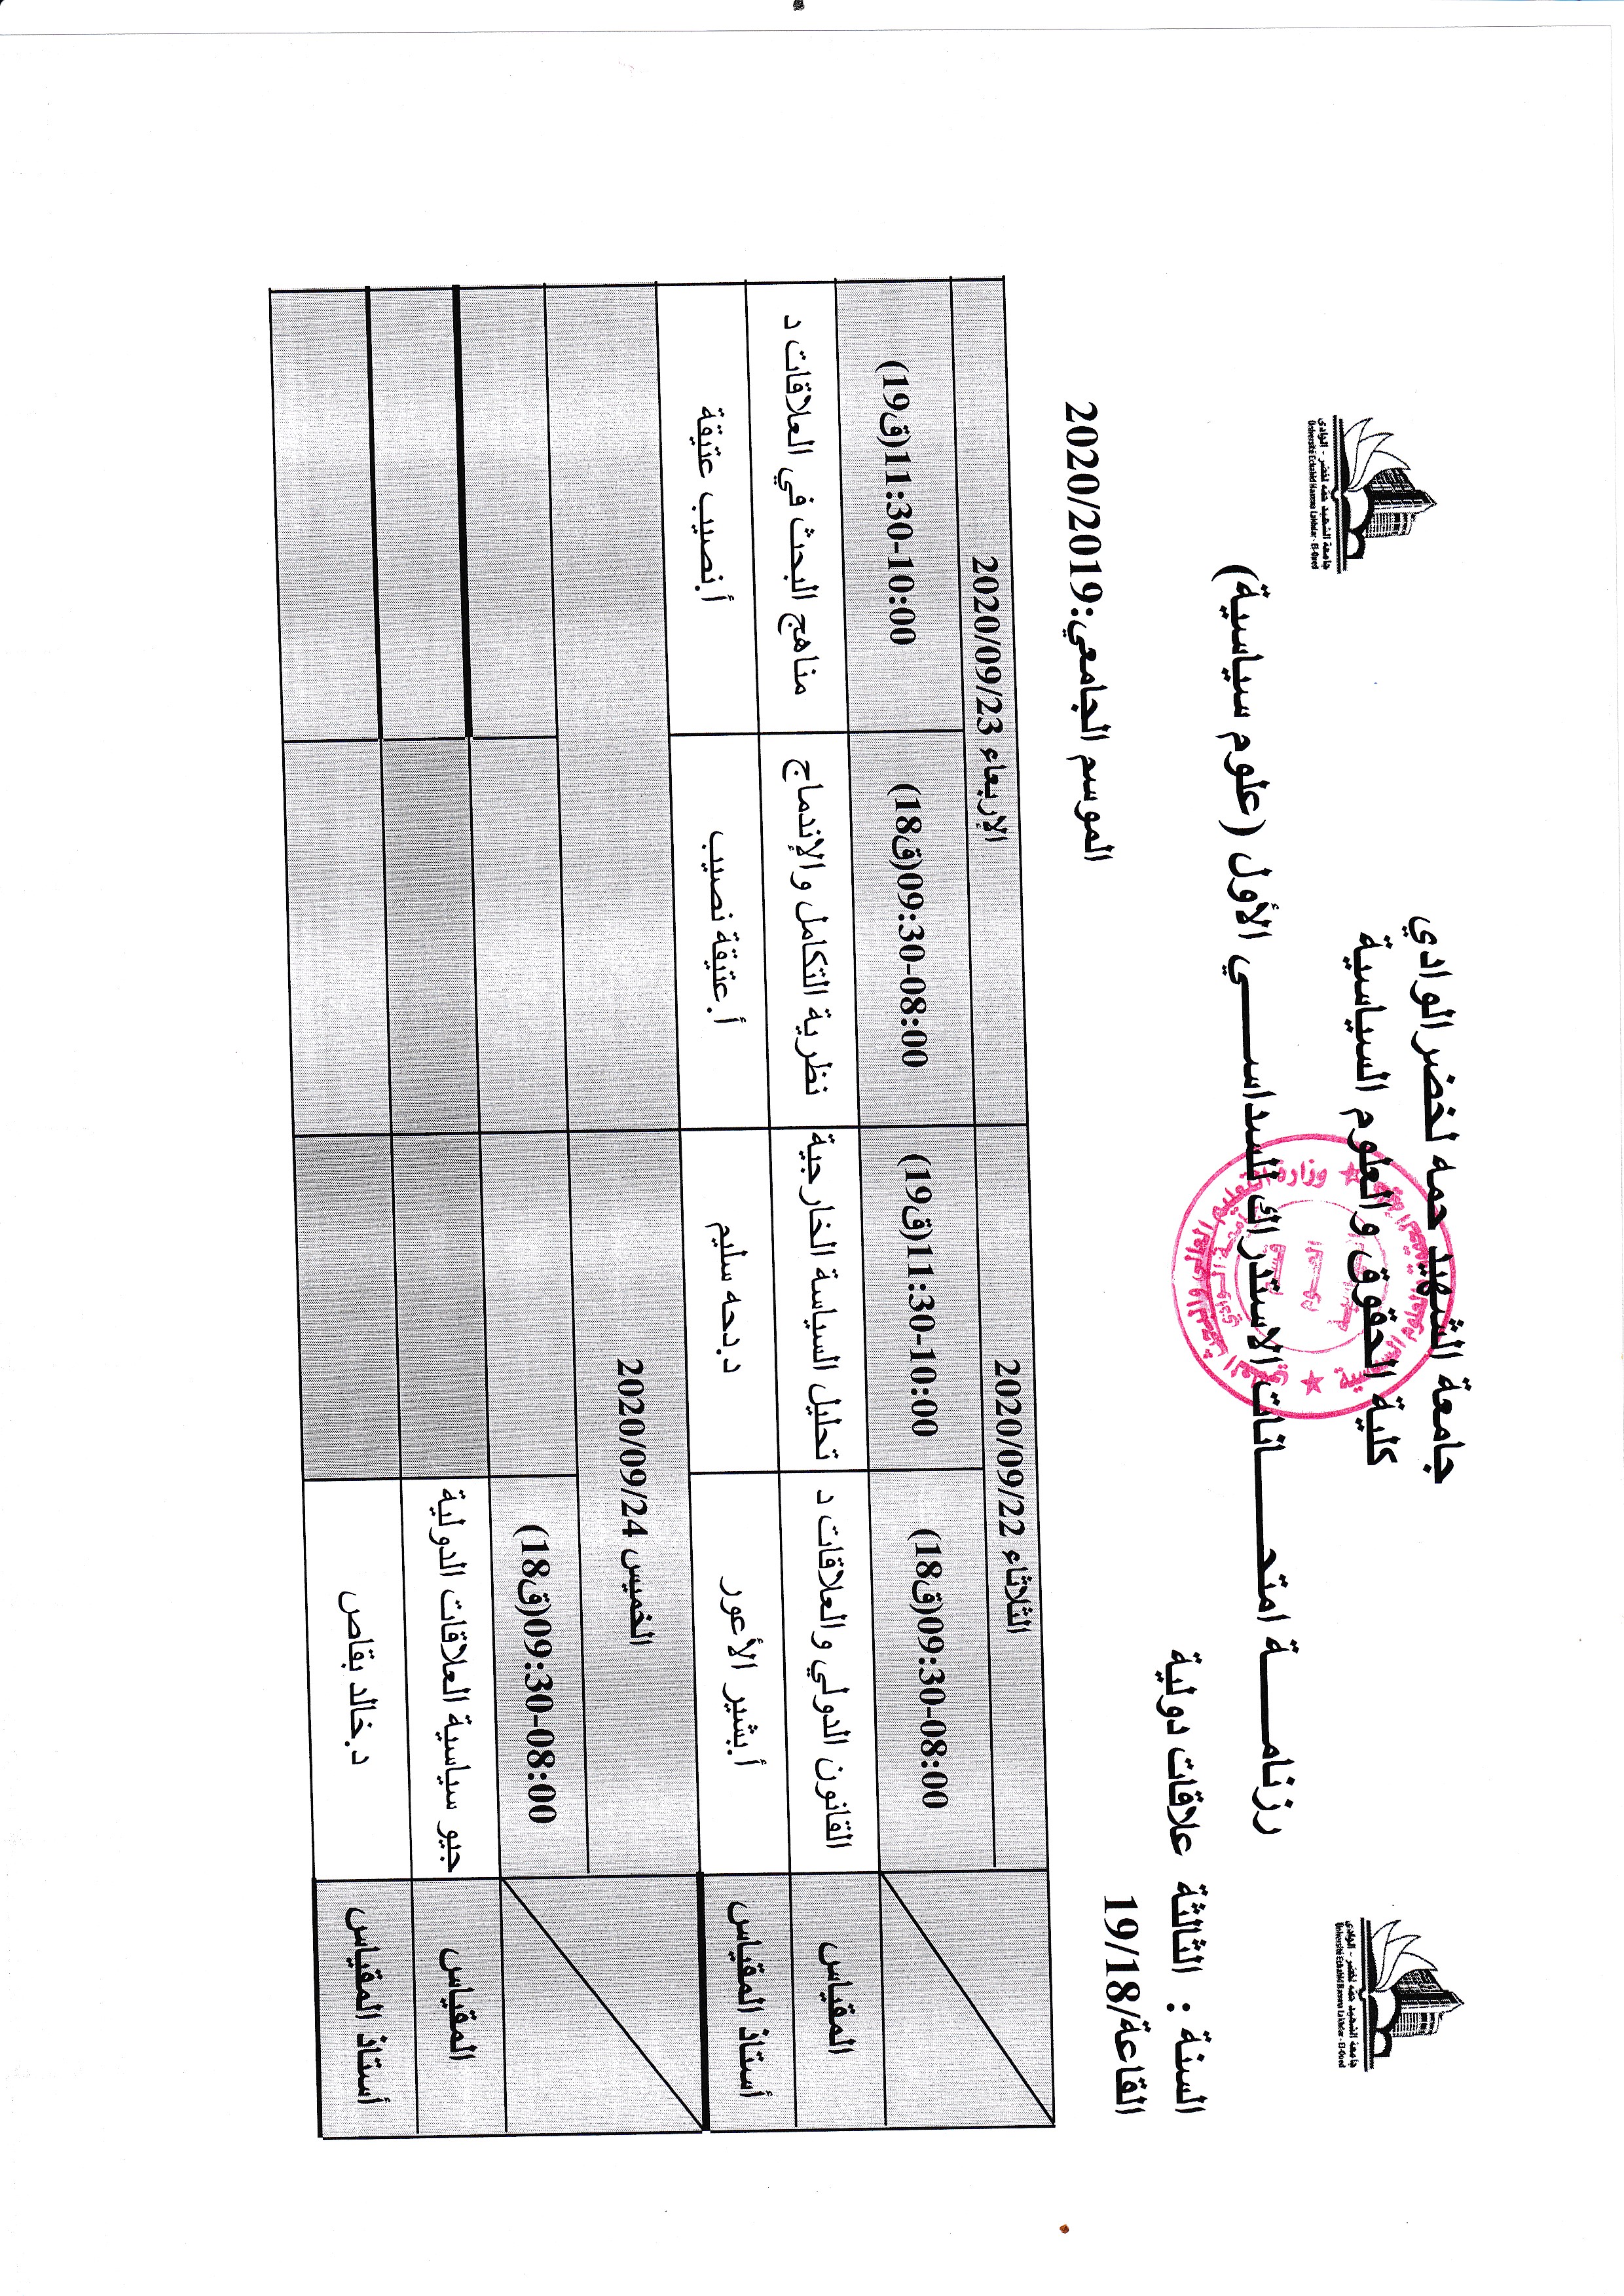 جامعة الشهيد حمه لخضر الوادي
كلية الحقوق و العلوم السياسية
رزنامــــــة امتحـــــــانات الاستدراك للسداســــي الأول (علوم سياسية)
السنة : الثالثة علاقات دولية
القاعة/19/18
الموسم الجامعي:2020/2019
جامعة الشهيد حمه لخضر - الوادي
Université Echahid Hamma Lakhdar - El-Oued
جامعة الشهيد حمه لخضر - الوادي
Université Echahid Hamma Lakhdar - El-Oued
الثلاثاء 2020/09/22
الإربعاء 2020/09/23
09:30-08:00(ق18)
11:30-10:00(ق19)
09:30-08:00(ق18)
11:30-10:00(ق19)
المقياس
القانون الدولي و العلاقات د
تحليل السياسة الخارجية
نظرية التكامل و الإندماج
مناهج البحث في العلاقات د
أستاذ المقياس
أ.بشير الأعور
د.دحه سليم
أ.عتيقة نصيب
أ.نصيب عتيقة
الخميس 2020/09/24
09:30-08:00(ق18)
المقياس
جيو سياسية العلاقات الدولية
أستاذ المقياس
د.خالد بقاص